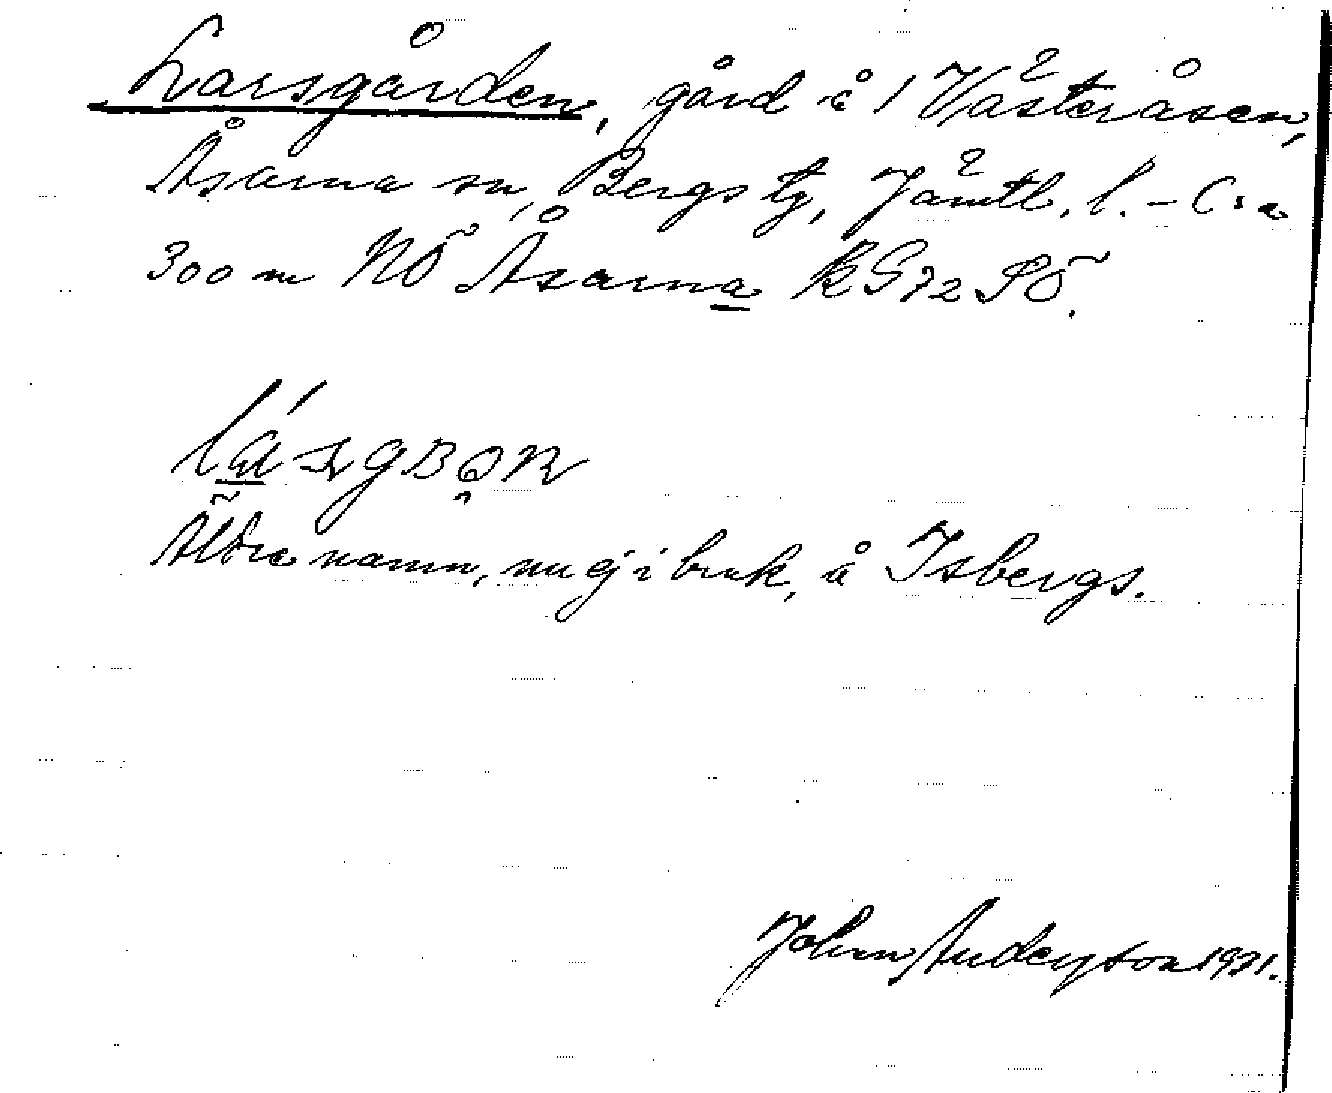 Larsgården, gård å 1 Västeråsen,
Åsarna sn, Bergs tg, Jämtl. l. – Ca
300 m NÖ Åsarna k G72 SÖ.
Äldre namn, nu ej i bruk, å Isbergs.
John Anderson 1971.